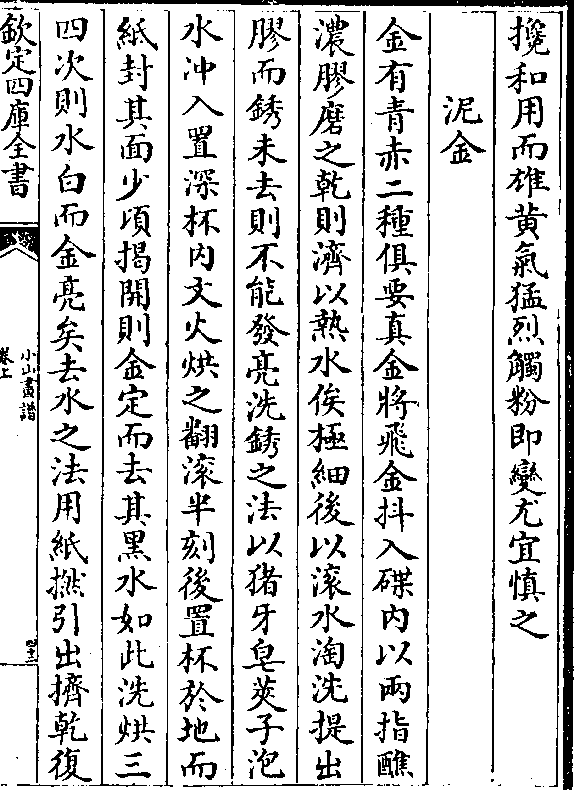 攪和用而雄黄氣猛烈觸粉即變尤宜慎之
泥金
金有青赤二種俱要真金將飛金抖入碟内以兩指醮
濃膠磨之乾則濟以熱水俟極細後以滚水淘洗提出
膠而銹未去則不能發亮洗銹之法以猪牙皂莢子泡
水冲入置深杯内文火烘之翻滚半刻後置杯於地而
紙封其面少頃揭開則金定而去其黑水如此洗烘三
四次則水白而金亮矣去水之法用紙撚引出擠乾復
欽定四庫全書
小山畫譜
卷上
四十三